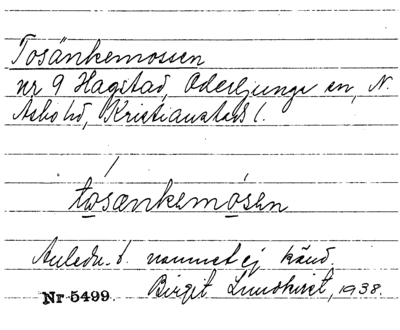 Tosänkemossen
nr 9 Hagstad, Oderljunga sn, N.
Åsbo hd, Kristianstads l.
tosænkemosen
Anledn. t. namnet ej känd.
Nr 5499. Birgit Lundkvist, 1938.